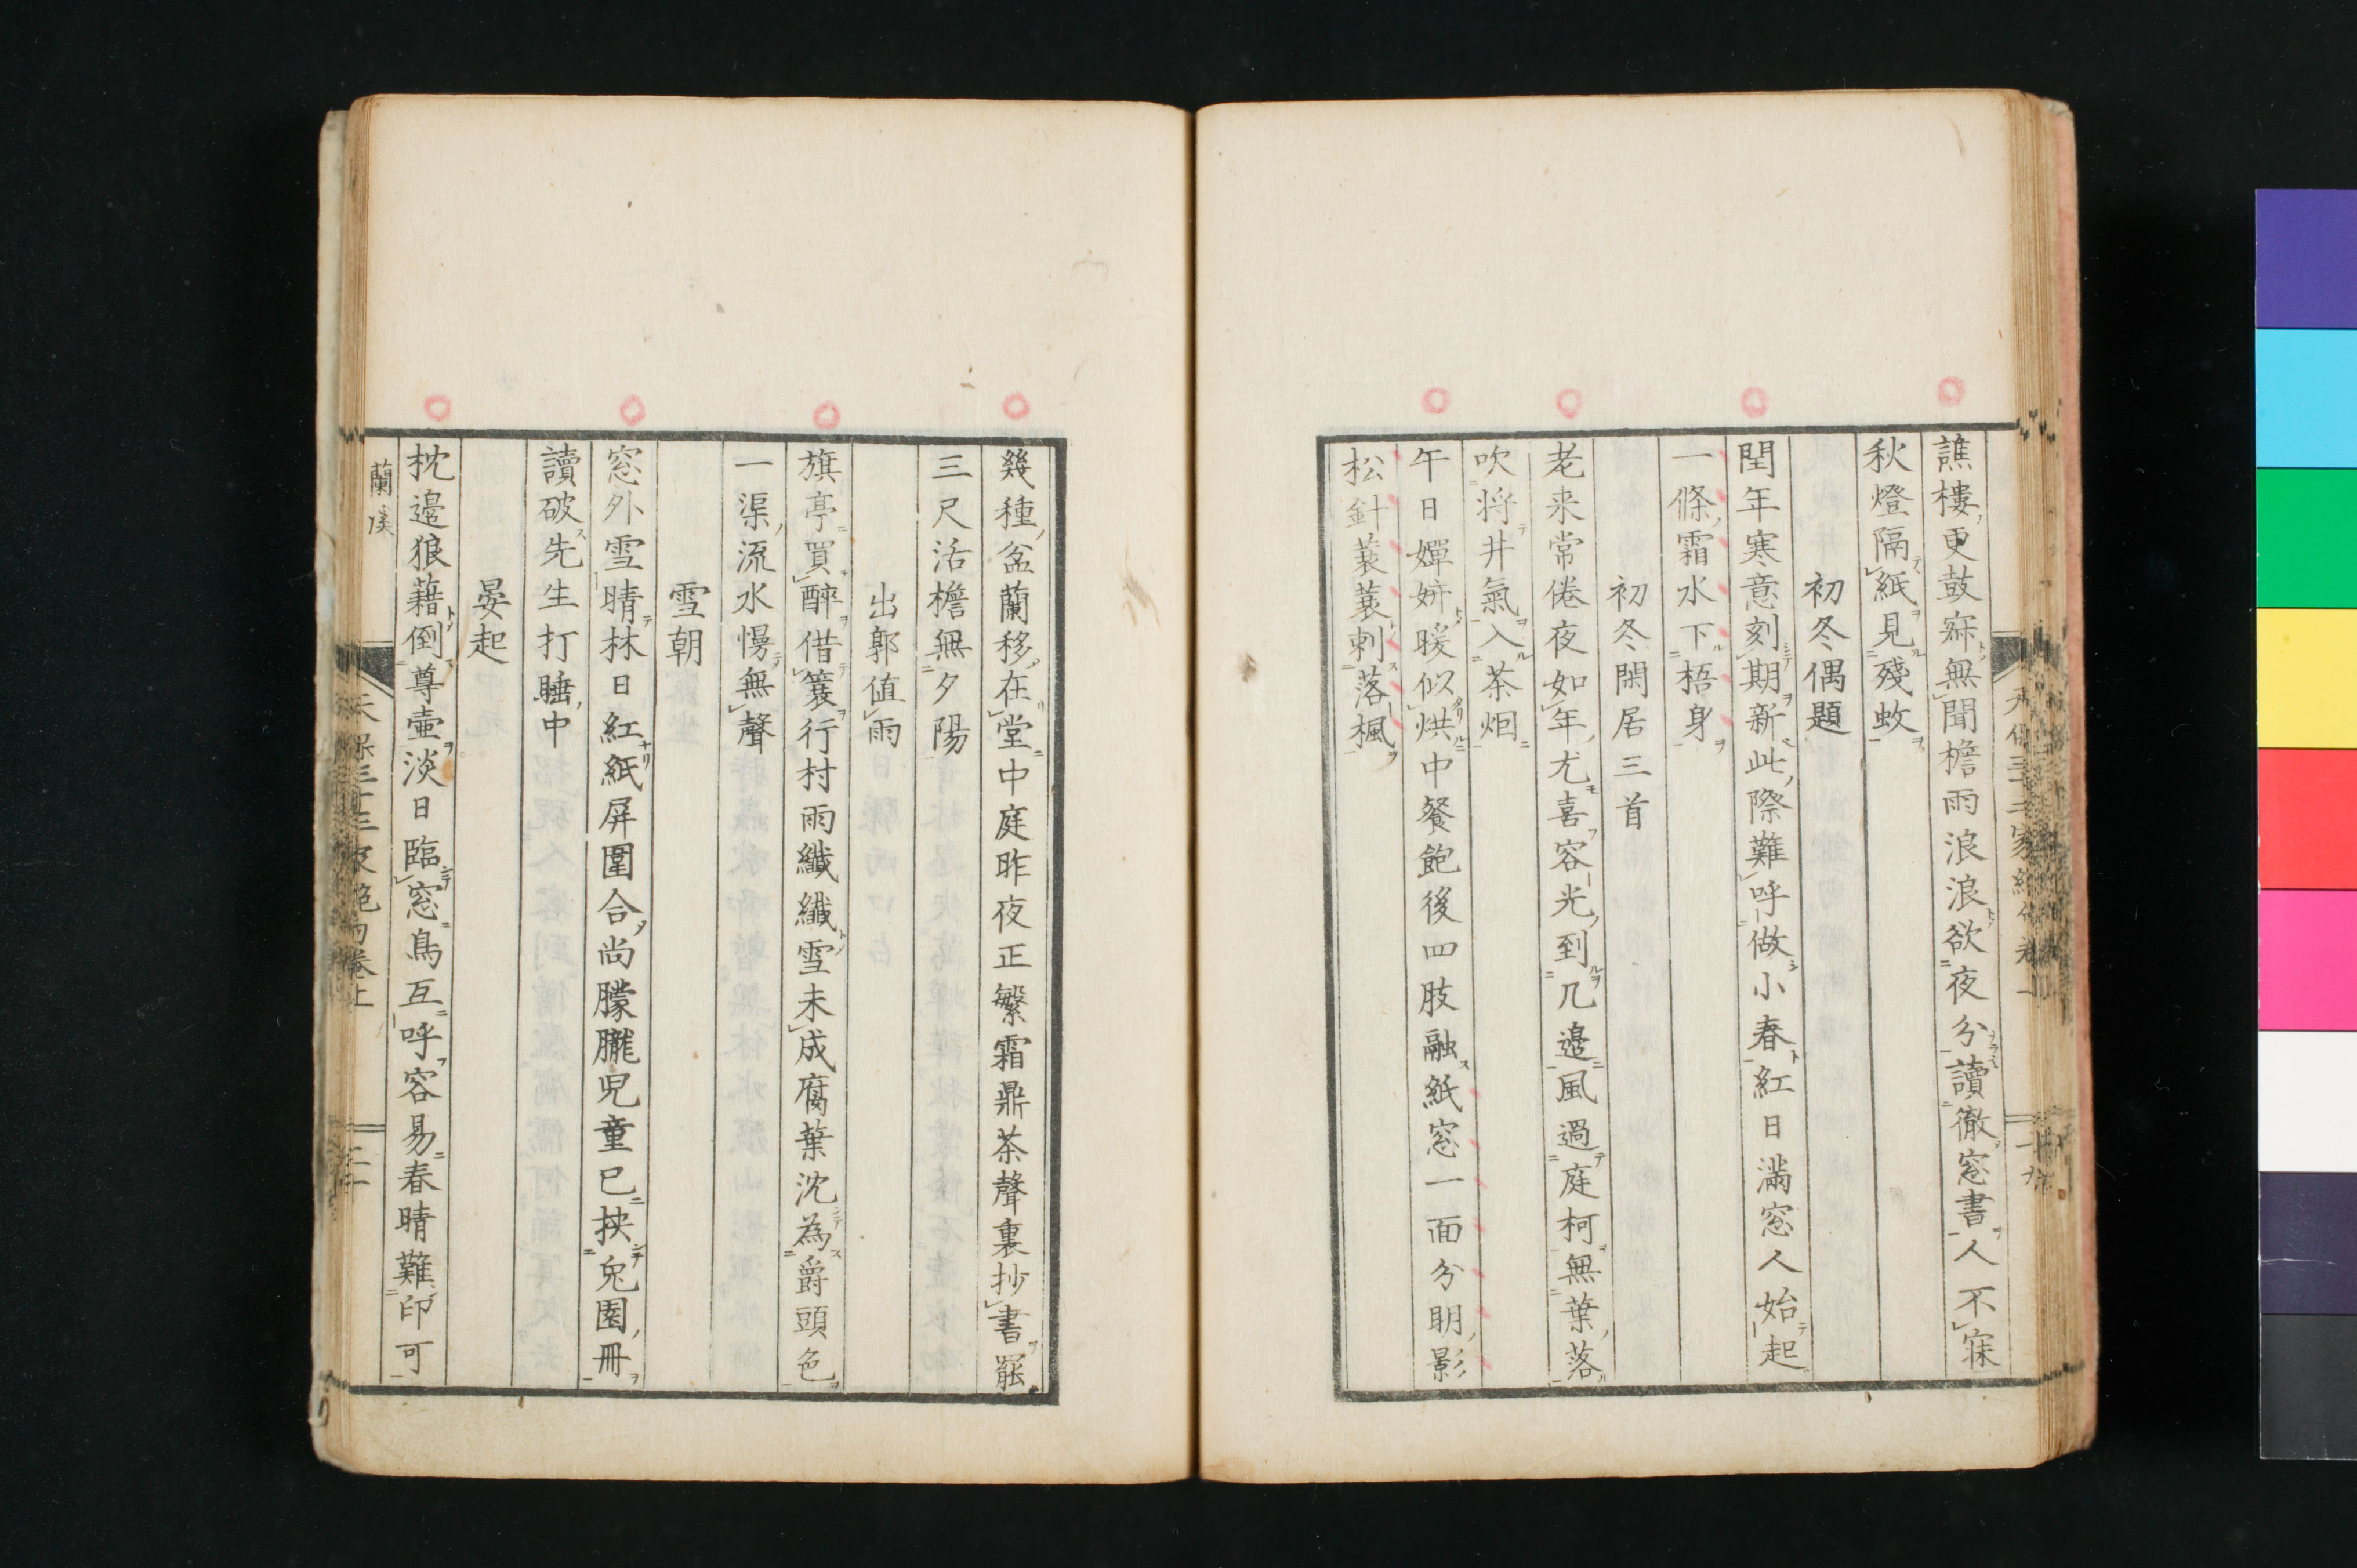 譙樓更鼓寂無聞檐雨浪浪欲夜分讀徹窓書人不寐
秋燈隔紙見殘蚊
初冬偶題
閏年寒意刻期新此際難呼做小春紅日滿窓人始起
一條霜水下梧身
初冬閑居三首
老来常倦夜如年尤喜容光到几邉風過庭柯無葉落
吹将井氣入茶烟
午日嬋妍暖似烘中餐飽後四肢融紙窓一面分明影
松針蓑蓑刺落楓
幾種盆蘭移在堂中庭昨夜正繁霜鼎茶聲裏抄書罷
三尺活檐無夕陽
出郭値雨
旗亭買醉借簑行村雨纎纎雪未成腐葉沈為爵頭色
一渠流水慢無聲
雪朝
窓外雪晴林日紅紙屏圍合尚朦朧児童已挾兔園冊
讀破先生打睡中
晏起
枕邉狼藉倒尊壷淡日臨窓鳥互呼容易春晴難印可
蘭溪
天保三十三家絶句卷上
二十